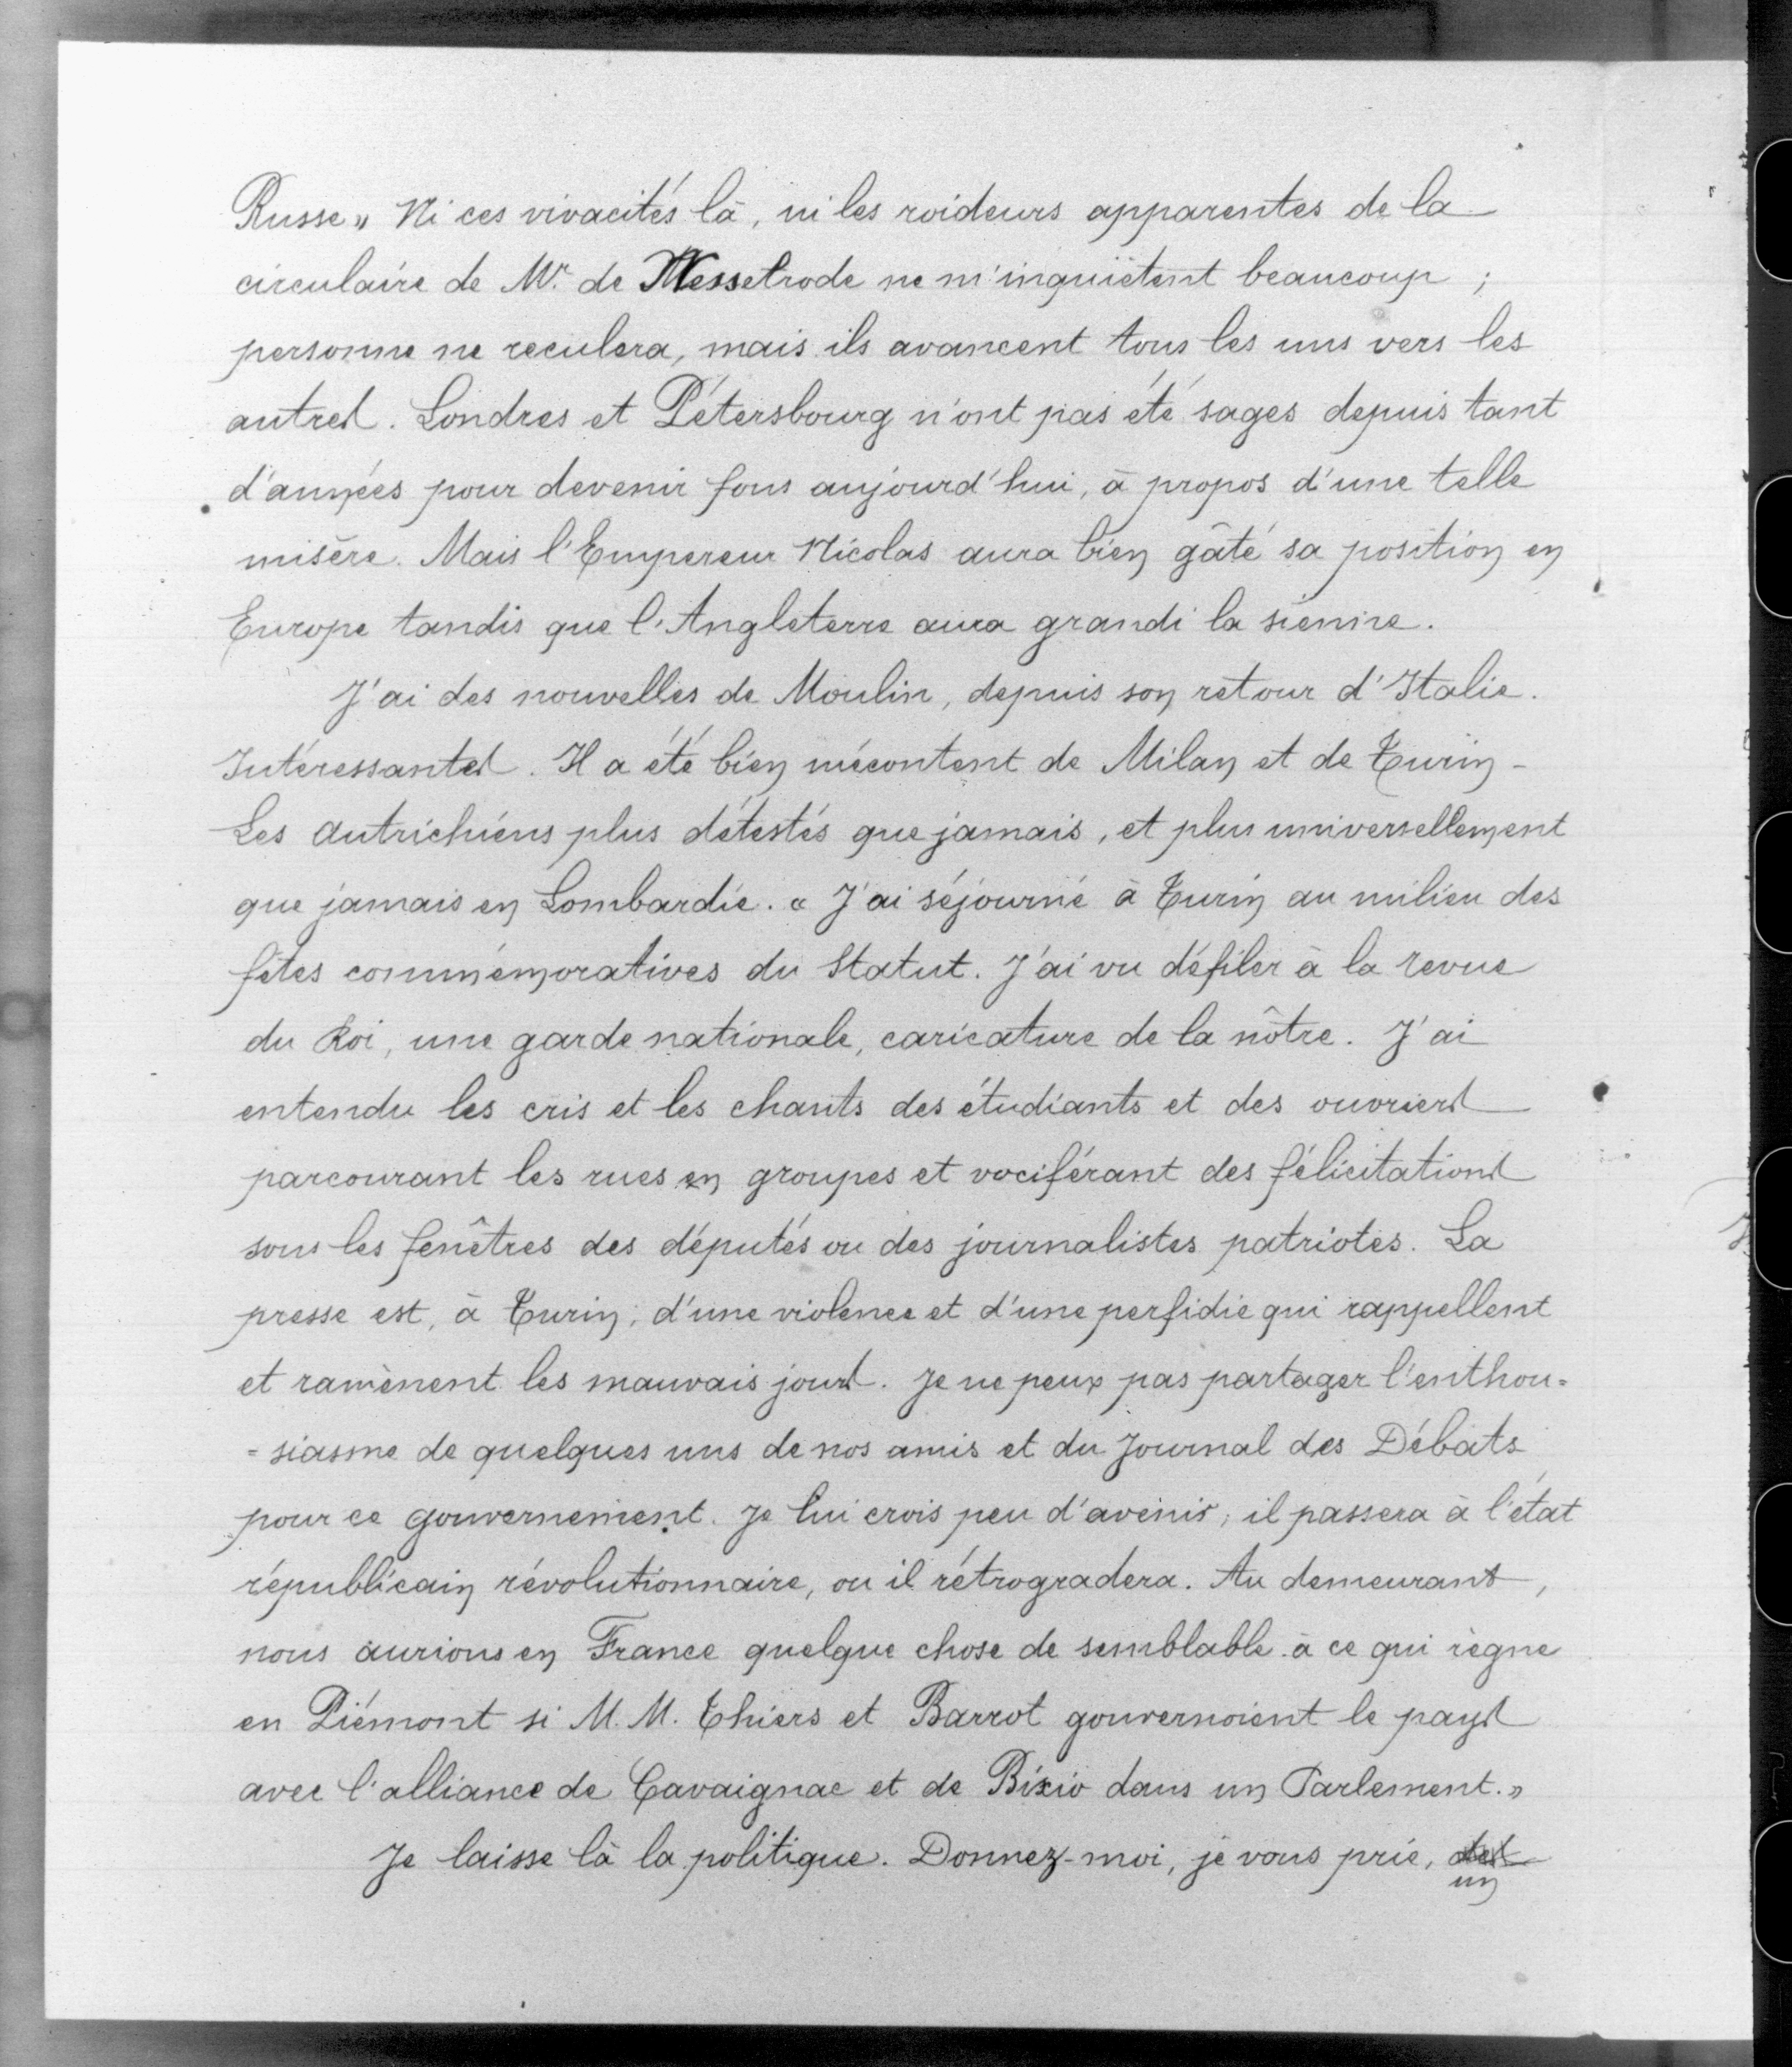 Russe » Ni ces vivacités là, ni les roideurs apparentes de la
circulaire de Mr. de Nesselrode ne m'inquiètent beaucoup ;
personne ne reculera, mais ils avancent tous les uns vers les
autres. Londres et Pétersbourg n'ont pas été sages depuis tant
d'années pour devenir fous aujourd'hui, à propos d'une telle
misère. Mais l'Empereur Nicolas aura bien gâté sa position en
Europe tandis que l'Angleterre aura grandi la sienne.
J'ai des nouvelles de Moulin, depuis son retour d'Italie.
Intéressantes. Il a été bien mécontent de Milan et de Turin -
Les autrichiens plus détestés que jamais, et plus universellement
que jamais en Lombardie. « J'ai séjourné à Turin au milieu des
fêtes commémoratives du Statut. J'ai vu défiler à la revue
du Roi, une garde nationale, caricature de la nôtre. J'ai
entendu les cris et les chants des étudiants et des ouvriers
parcourant les rues en groupes et vociférant des félicitations
sous les fenêtres des députés ou des journalistes patriotes. La
presse est, à Turin, d'une violence et d'une perfidie qui rappellent
et ramènent les mauvais jours. Je ne peux pas partager l'enthou=
=siasme de quelques uns de nos amis et du Journal des Débats
pour ce gouvernement. Je lui crois peu d'avenir ; il passera à l'état
républicain révolutionnaire, ou il rétrogradera. Au demeurant,
nous aurions en France quelque chose de semblable à ce qui règne
en Piémont si M.M. Thiers et Barrot gouvernoient le pays
avec l'alliance de Cavaignac et de Bixio dans un Parlement. »
Je laisse là la politique. Donnez-moi, je vous prie, des
un